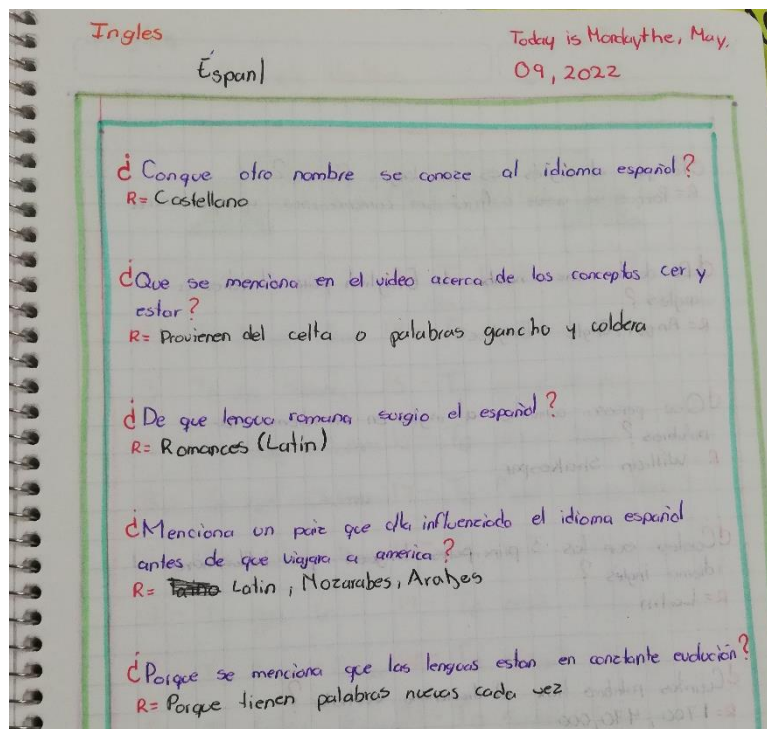 Ingles
Today is Mondaythe, May,
09, 2022
Espanl
¿Conque otro nombre se conoze al idioma español?
R= Castellano
¿Que se menciona en el video acerca de los conceptos cer y
estar?
R= Provienen del celta o palabras gancho y caldera
¿De que lengua romana surgio el español?
R= Romances (Latín)
¿Menciona un paiz que influenciado el idioma español
antes de que viajara a america?
R= Latin, Mozarabes, Arabes
¿Porque se menciona que las lenguas estan en conctante evolución?
R= Porque tienen palabras nuevas cada vez